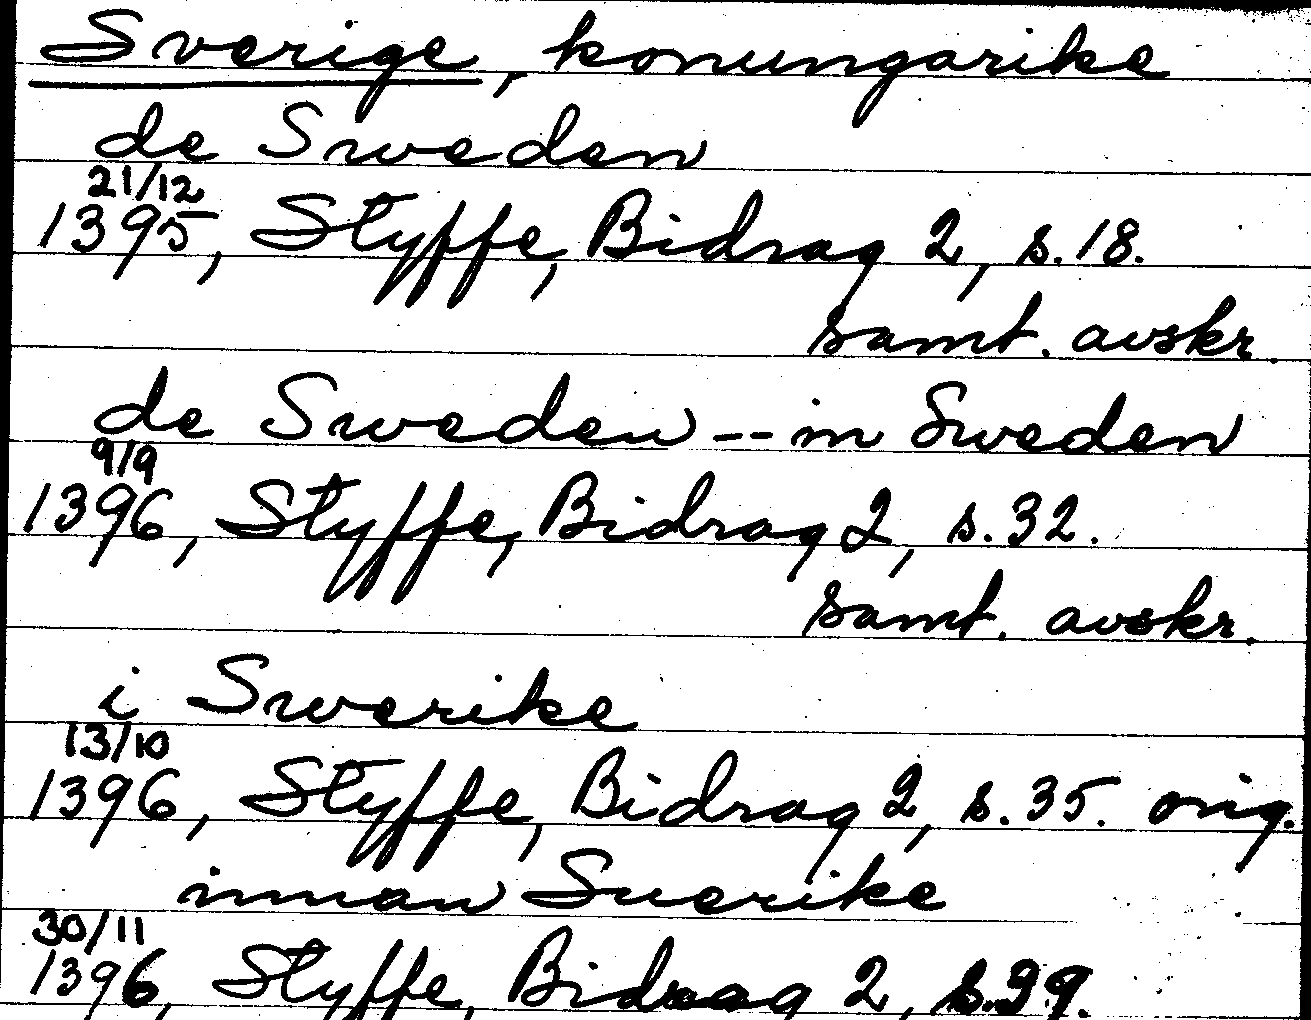 Sverige, konungarike
de Sweden
21/12
1395, Styffe, Bidrag 2, s. 18.
samt. avskr.
de Sweden -- in Sweden
9/9
1396, Styffe, Bidrag 2, s. 32.
samt. avskr.
i Swerike
13/10
1396, Styffe, Bidrag 2, s. 35. orig.
innan Suerike
30/11
1396, Styffe, Bidrag 2, s. 39.